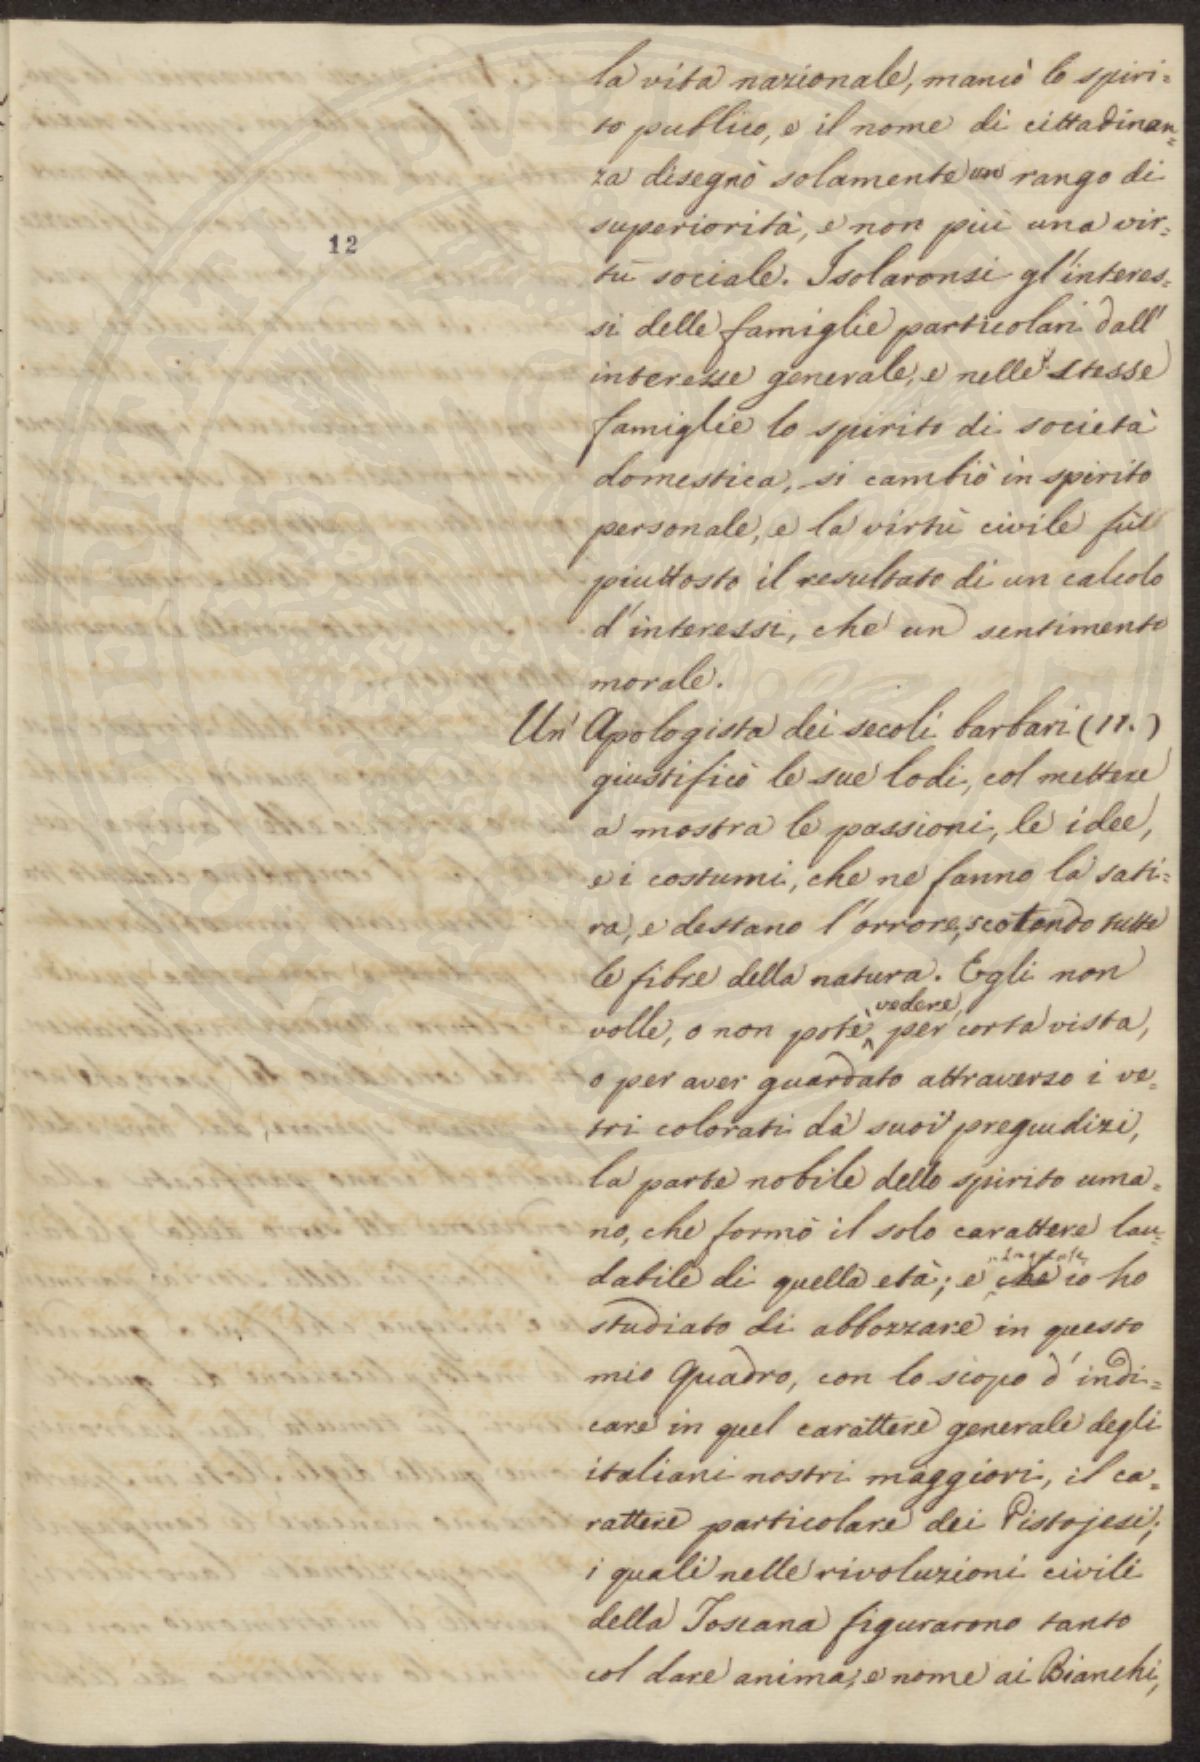 la vita nazionale, mancò lo spiri=
to publico, e il nome di cittadinan=
za disegnò solamente un rango di
superiorità, e non più una vir=
tù sociale. Isolaronsi gl'interes=
si delle famiglie particolari dall'
interesse generale, e nelle stesse
famiglie lo spirito di società
domestica, si cambiò in spirito
personale, e la virtù civile fù
piuttosto il resultato di un calcolo
d'interessi, che un sentimento
morale.
Un' Apologista dei secoli barbari (11.)
giustificò le sue lodi, col mettere
a mostra le passioni, le idee,
e i costumi, che ne fanno la sati=
ra, e destano l'orrore, scotendo tutte
le fibre della natura. Egli non
volle, o non potè vedere, per corta vista,
o per aver guardato attraverso i ve=
tri colorati dà suoi pregiudizi,
la parte nobile dello spirito uma=
no, che formò il solo carattere lau=
dabile di quella età; e che io ho
studiato di abbozzare in questo
mio Quadro, con lo scopo d'indi=
care in quel carattere generale degli
italiani nostri maggiori, il ca=
rattere particolare dei Pistojesi;
i quali nelle rivoluzioni civili
della Toscana figurarono tanto
col dare anima, e nome ai Bianchi,
12